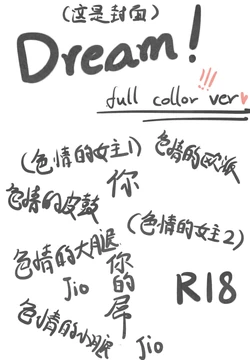 (这是封面)
Dream!
full collor ver♥
(色情的女主1)
色情的欧派
你
色情的皮鼓
(色情的女主2)
色情的大腿
你的屌
Jio
R18
色情的小腿
Jio